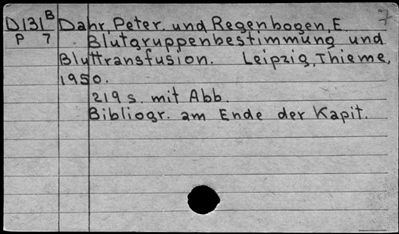 D131 B Dahr, Peter. und Regenbogen, E 7
P 7 Blutgruppenbestimmung und
Bluttransfusion. Leipzig, Thieme,
1950.
219 s. mit Abb.
Bibliogr. am Ende der Kapit.